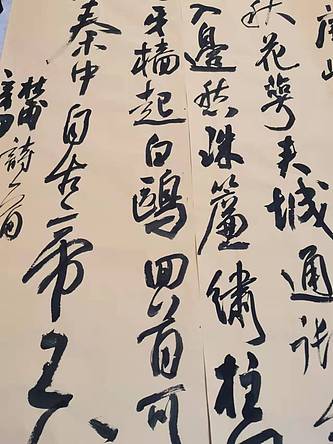 秋花萼夾城通御
入邊愁珠簾繡柱
牙檣起白鷗回首可
秦中自古帝王
詩一首